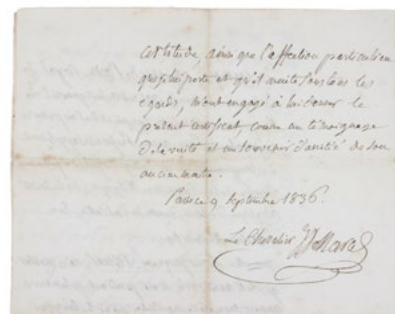 certitude ainsi que l'affection particulière
que je lui porte et qu'il mérite sous tous les
égards, m'ont engagé à lui donner le
présent certificat, comme un témoignage
de la vérité et un souvenir d'amitié de son
ancien maitre.
Paris ce 9 septembre 1836.
Le Chevalier